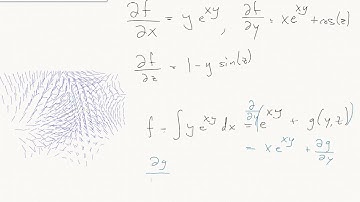 ∂f/∂x = y e^{xy} , ∂f/∂y = x e^{xy} + cos(z)
∂f/∂z = 1 - y sin(z)
f = ∫ y e^{xy} dx = ∂/∂y ( e^{xy} + g(y,z) )
= x e^{xy} + ∂g/∂y
∂g